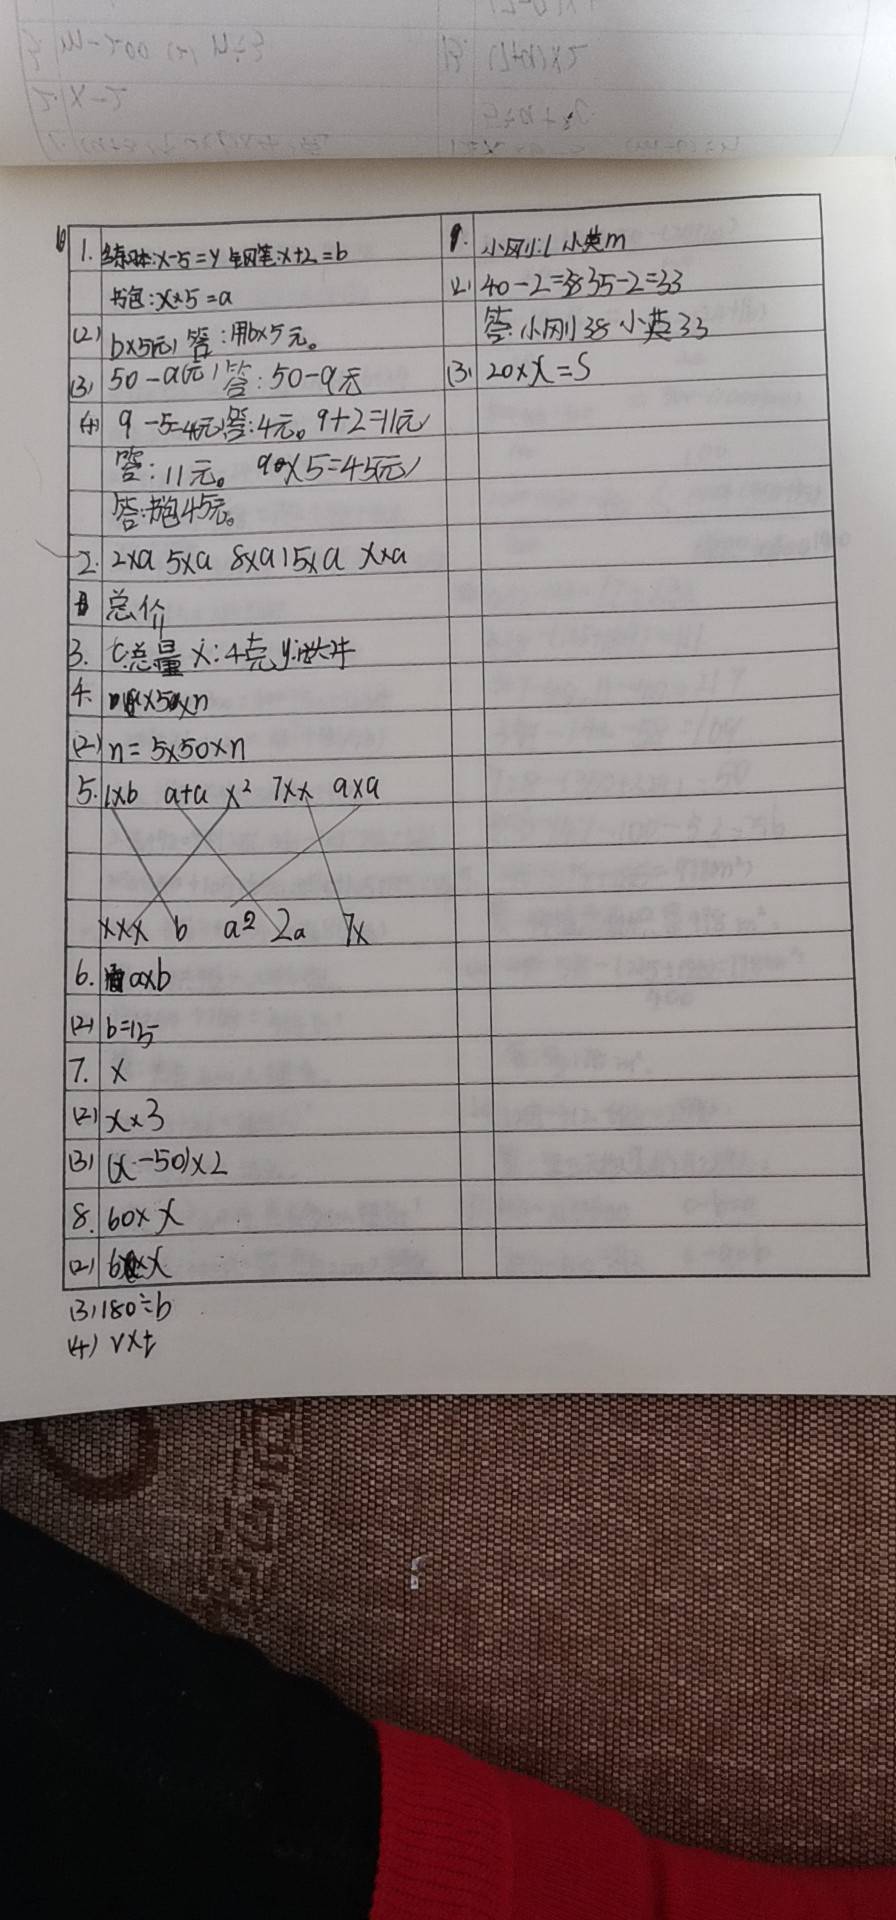 1. 练习本:x-5=y 钢笔:x+2=b
书包:x×5=a
(2) b×5(元) 答:用b×5元。
(3) 50-a(元) 答:50-a元
(4) 9-5=4(元) 答:4元。 9+2=11元
答:11元。 9×5=45(元)
答:书包45元。
2. 2×a 5×a 8×a 15×a x×a
总价
3. C:总量 x:4克
4. ×50×n
(2) n=5×50×n
5. 1×b a+a x² 7×x a×a
x×x b a² 2a 7x
6. a×b
(2) b=15
7. x
(2) x×3
(3) (x-50)×2
8. 60×x
(2) 6×x
(3) 180÷b
(4) v×t
9. 小刚:l 小英m
(2) 40-2=38 35-2=33
答:小刚38 小英33
(3) 20×x=S